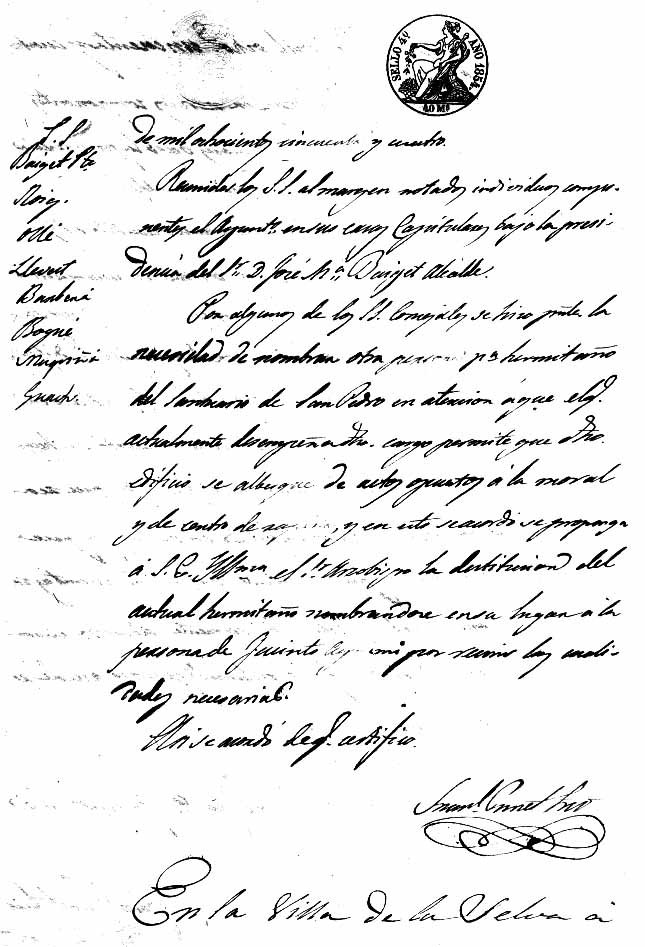 SELLO 4º AÑO 1854.
40 Ms
de mil ochocientos cincuenta y cuatro.
S. S.
Puiget Pte
Roig
Ollé
Llevert
Barberá
Bogné
Mugriñá
Guach.
Reunidos los S.S. al margen notados individuos compo-
nentes el Ayuntº. en sus casas Capitulares bajo la presi-
dencia del Sr. D. José Mª. Puiget Alcalde.
Por algunos de los SS. Concejales se hizo pnte. la
necesidad de nombrar otra persona pª hermitaño
del Santuario de San Pedro en atencion á que el q.
actualmente desempeña dho. cargo permite que dho.
edificio se albergue de actos opuestos á la moral
y de centro de, y en esto se acordó se proponga
á S. E. Yllma el Sr. Arzobispo la destitucion del
actual hermitaño nombrandose en su lugar á la
persona de Jacinto por reunir las cuali-
dades necesarias.
Asi se acordó de q. certifico.
Srio
En la Villa de la Selva á